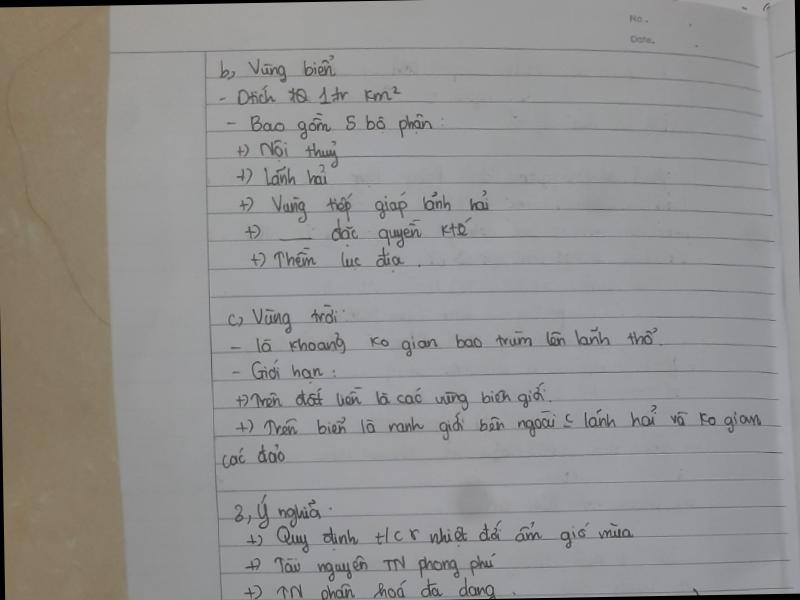 No.
Date.
b, Vùng biển
- Dtích tQ 1tr km²
- Bao gồm 5 bộ phận:
+) Nội thuỷ
+) Lãnh hải
+) Vùng tiếp giáp lãnh hải
+) ___ đặc quyền Ktế
+) Thềm lục địa.
c, Vùng trời:
- là khoảng ko gian bao trùm lên lãnh thổ.
- Giới hạn:
+) Trên đất liền là các vùng biên giới.
+) Trên biển là ranh giới bên ngoài c lãnh hải và ko gian
các đảo
3, Ý nghĩa.
+) Quy định t/c r nhiệt đới ẩm gió mùa
+) Tài nguyên TN phong phú
+) TN phân hoá đa dạng.